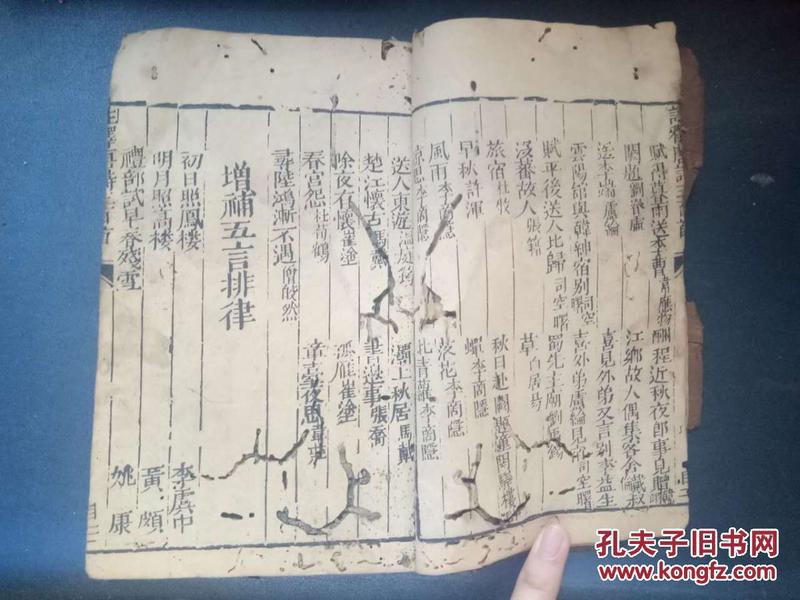 賦得暮雨送李曹 韋應物 酬程近秋夜即事見贈
闕題 劉眘虛 江鄉故人偶集客舍 戴叔
李端 盧綸 喜見外弟又言別 李益生
雲陽館與韓紳宿別 司空 喜外弟盧綸見宿 司空曙
賊平後送人北歸 司空曙 蜀先主廟 劉禹錫
沒蕃故人 張籍 草 白居易
旅宿 杜牧 秋日赴闕題潼關驛
早秋 許渾 蟬 李商隱
風雨 李商隱 落花 李商隱
涼思 李商隱 北青蘿 李商隱
送人東遊 溫庭筠 灞上秋居 馬戴
楚江懷古 馬戴 書邊事 張喬
除夜有懷 崔塗 孤雁 崔塗
春宮怨 杜荀鶴 章臺夜思 韋莊
尋陸鴻漸不遇 僧皎然
增補五言排律
初日照鳳樓 李虞中
明月照高樓 黃頗
禮部試早春殘雪 姚康
目二
孔夫子旧书网
www.kongfz.com